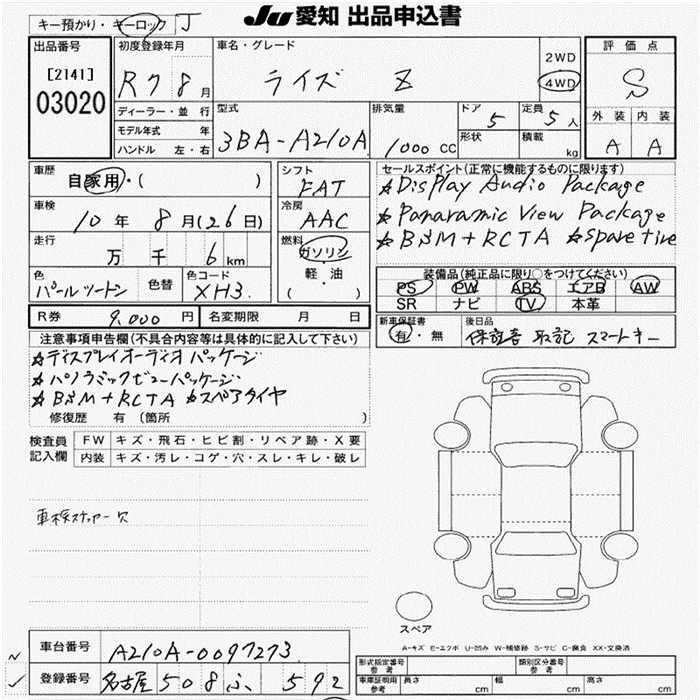 キー預かり・キーロック J
Ju 愛知 出品申込書
出品番号
[2141]
03020
初度登録年月
R7 8月
ディーラー・並 行
モデル年式 年
ハンドル 左・右
車名・グレード
ライズ Z
2WD
4WD
型式
3BA-A210A
排気量
1000 cc
ドア
5
定員
5人
形状
積載
kg
評価点
S
外装 内装
A A
車歴
自家用・( )
車検
10年 8月(26日)
走行
万 千 6km
色
パールツートン
色替
色コード
XH3
シフト
FAT
冷房
AAC
燃料
ガソリン
軽・油
( )
R券 9,000円
名変期限 月 日
セールスポイント(正常に機能するものに限ります)
☆Display Audio Package
☆Panaramic View Package
☆BSM+RCTA ☆spare tire
装備品(純正品に限り○をつけてください)
PS PW ABS エアB AW
SR ナビ TV 本革
新車保証書
有・無
後日品
保証書 取記 スマートキー
注意事項申告欄(不具合内容等は具体的に記入して下さい)
☆ディスプレイオーディオパッケージ
☆パノラミックビューパッケージ
☆BSM+RCTA ☆スペアタイヤ
修復歴 有 (箇所 )
検査員
記入欄
FW キズ・飛石・ヒビ割・リペア跡・X要
内装 キズ・汚レ・コゲ・穴・スレ・キレ・破レ
車検ステッカー欠
スペア
A-キズ E-エクボ U-凹み W-補修跡 S-サビ C-腐食 XX-交換済
車台番号 A210A-0097273
登録番号 名古屋 508 ふ 592
型式指定番号
参考
類別区分番号
参考
車庫証明用
参考
長さ cm
幅 cm
高さ cm